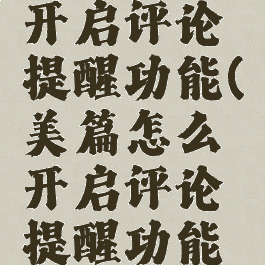 开启评论
提醒功能(
美篇怎么
开启评论
提醒功能